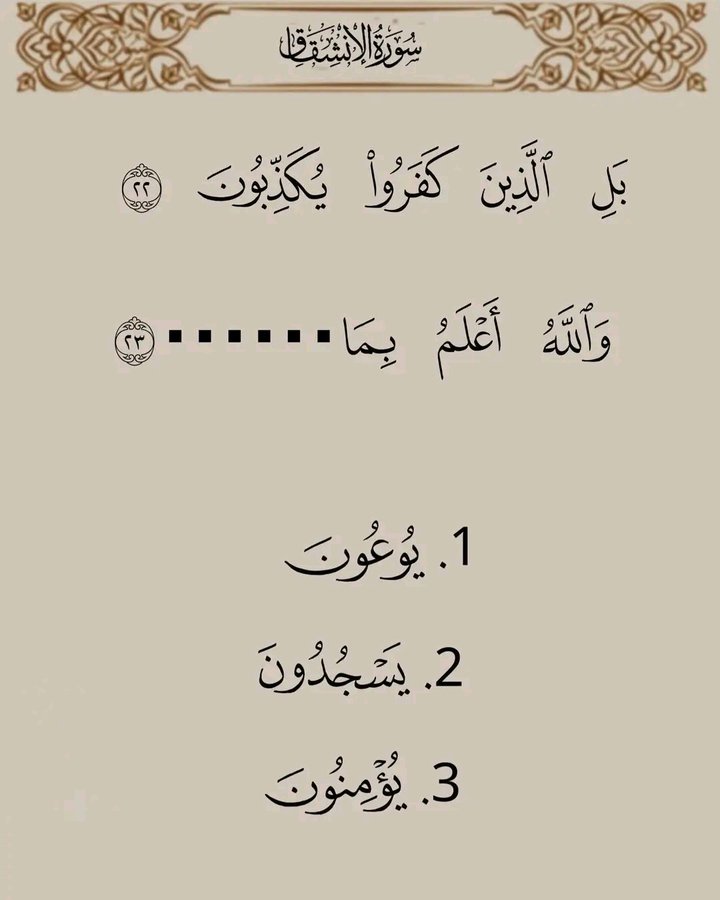 سُورَةُ الِانْشِقَاقِ
بَلِ ٱلَّذِينَ كَفَرُوا۟ يُكَذِّبُونَ ٢٢
وَٱللَّهُ أَعْلَمُ بِمَا ...... ٢٣
1. يُوعُونَ
2. يَسْجُدُونَ
3. يُؤْمِنُونَ